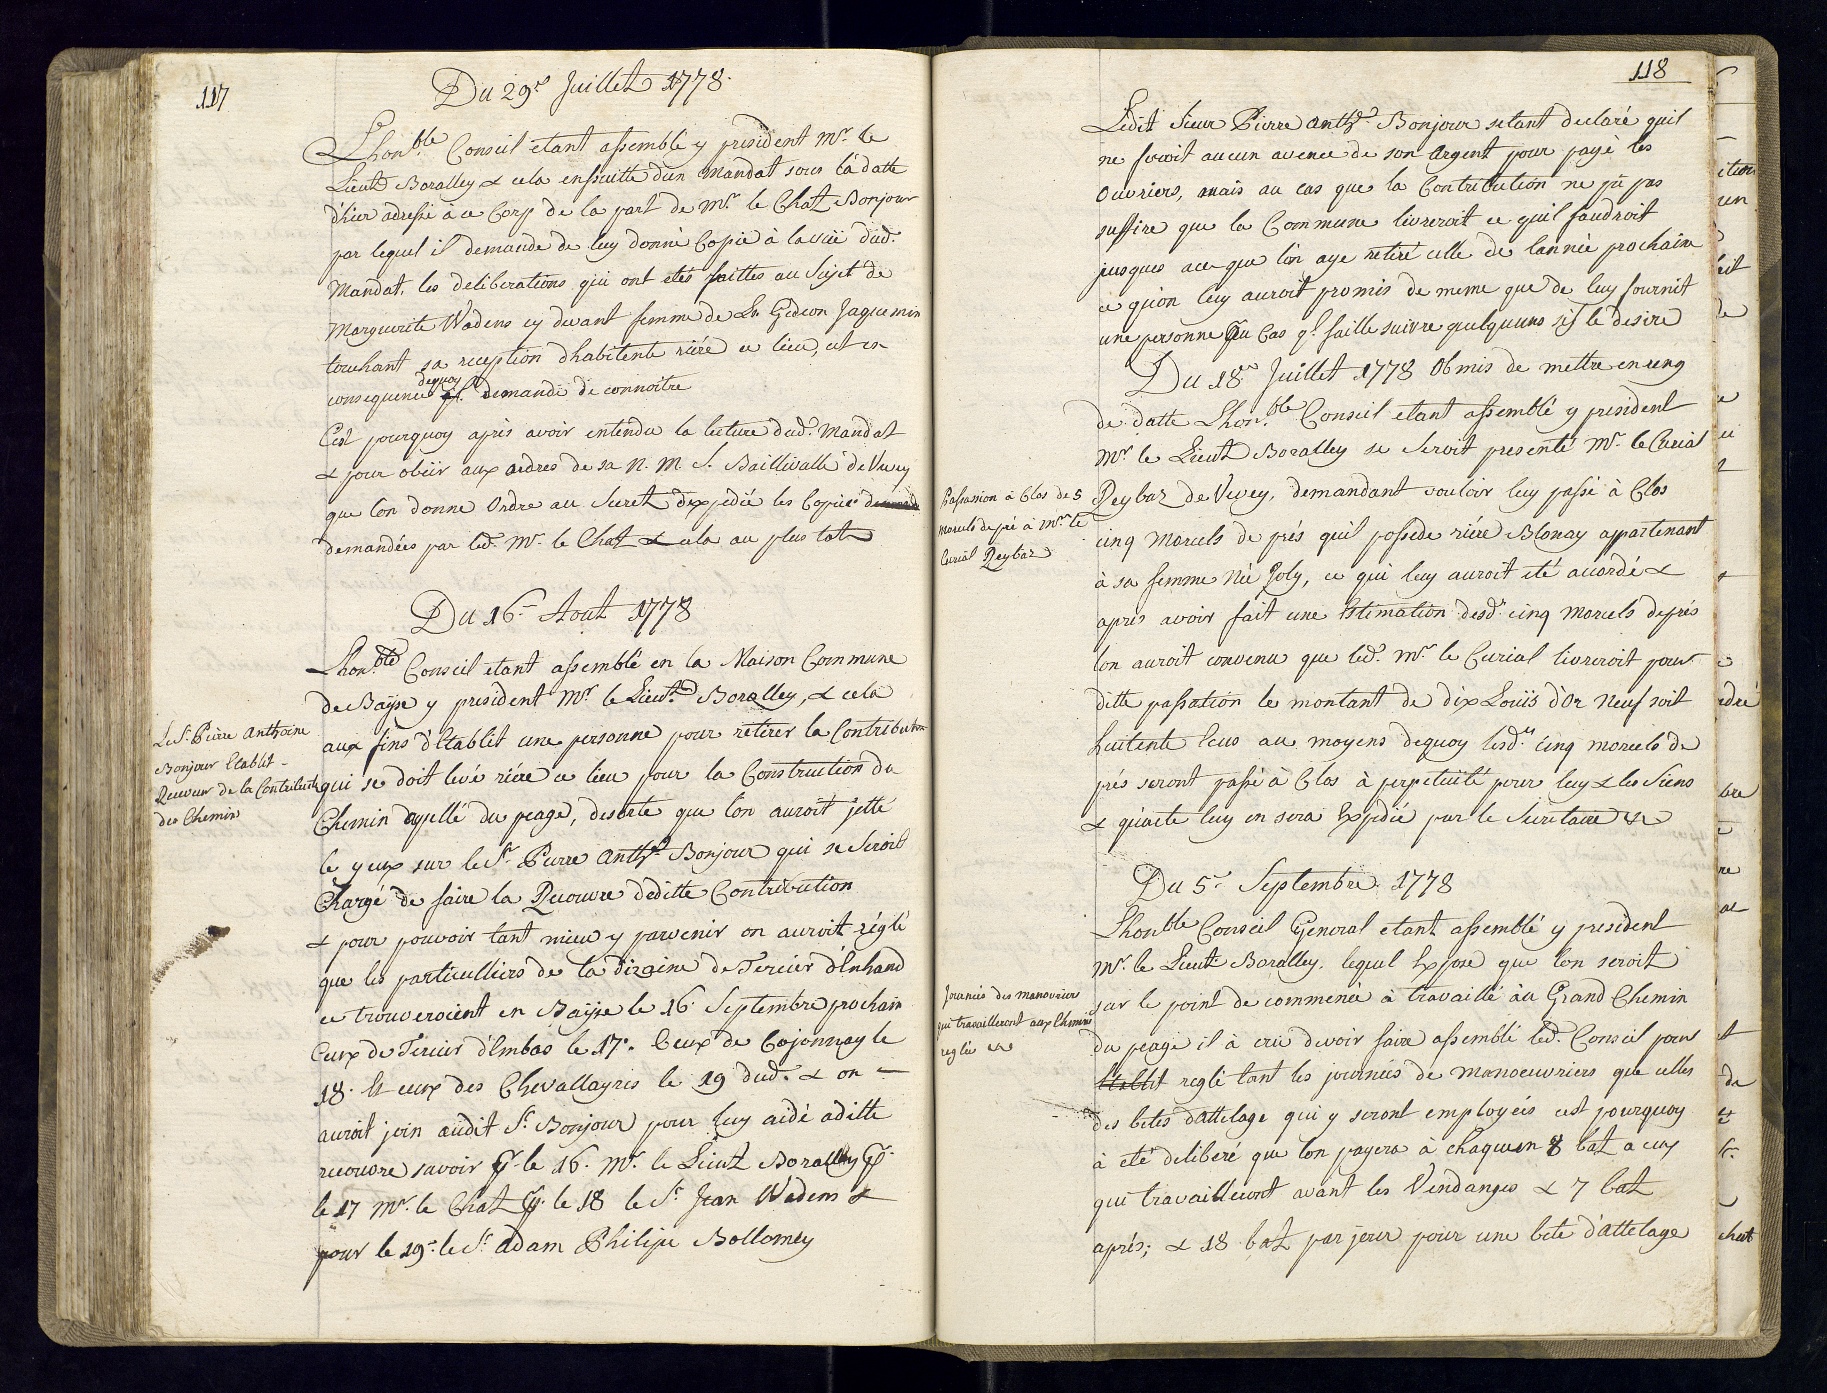 117
Du 29.e Juillet 1778.
Lhon.ble Conseil etant assemblé y president Mr. le
Lieut. Boralley & cela ensuitte d'un Mandat sous la datte
d'hier adressé à ce Corp de la part de Mr. le Chat. Bonjour
par lequel il demande de luy donné Copie à la vüe dud.
Mandat, les deliberations qui ont etés faittes au Sujet de
Marguerite Wadens cy devant femme de Gédeon Jaquemin
touchant sa reception d'habitente riére ce lieu, et en
consequence dequoy demande de connoitre
C'est pourquoy après avoir entendu la lecture dud. Mandat
& pour obéir aux ordres de sa N. M. S. Baillivalle de Vevey
que l'on donne Ordre au Secret. d'expédié les Copies demande
demandées par led. Mr. le Chat. & cela au plus tot
Du 16.e Aout 1778
Lhon.ble Conseil etant assemblé en la Maison Commune
de Baÿse y president Mr. le Lieut. Boralley, & cela
Le Sr. Pierre Anthoine
Bonjour Etablit
Receveur de la Contribution
des Chemin
aux fins d'Etablit une personne pour retirer la Contribution
qui se doit levé riére ce lieu pour la Construction du
Chemin appellé du peage, desorte que l'on auroit jetté
le yeux sur le Sr. Pierre Anth. Bonjour qui se seroit
Chargé de faire la Recouvre deditte Contribution
& pour pouvoir tant mieu y parvenir on auroit réglé
que les particulliers de la dizaine de Tercier d'Enhaud
ce trouveroient en Baÿse le 16. Septembre prochain
Ceux de Tercier d'Embas le 17.e Ceux de Cojonnay le
18. Et ceux des Chevallayres le 19 dud. & on
auroit join audit Sr. Bonjour pour luy aidé aditte
recouvre savoir pr. le 16. Mr. le Lieut. Boralley pr.
le 17 Mr. le Chat. pr. le 18 le Sr. Jean Wadens &
pour le 19.e le Sr. Adam Philipe Bollomey
118
Ledit Sieur Pierre Anth. Bonjour setant declaré quil
ne feroit aucun avence de son Argent pour payé les
Ouvriers, mais au cas que la Contribution ne pü pas
suffire que la Commune livreroit ce quil faudroit
jusques ace que l'on aye retiré celle de lannée prochaine
ce qu'on luy auroit promis de meme que de luy fournit
une personne au Cas ql. faille suivre quelquuns s'il le desire
Du 18.e Juillet 1778 Obmis de mettre en reng
de datte Lhon.ble Conseil etant assemblé y president
Mr. le Lieut. Boralley se Seroit presenté Mr. le Curial
Passation à Clos de 5
morcels de pré à Mr. le
Curial Reybaz
Reybaz de Vevey, demandant vouloir luy passé à Clos
cinq Morcels de prés quil possede riére Blonay appartenant
à sa femme Née Joly, ce qui luy auroit eté accordé &
après avoir fait une Estimation desd. cinq Morcels de prés
lon auroit convenu que led. Mr. le Curial livreroit pour
ditte passation le montant de dix Louïs d'Or Neuf soit
huitente Ecus au moyens dequoy lesd. cinq morcels de
prés seront passé à Clos à perpetuité pour luy & les Siens
& qu'acte luy en sera Expédié par le Secretaire
Du 5.e Septembre 1778
Lhonble Conseil General etant assemblé y president
Mr. le Lieut. Boralley. lequel Expose que lon seroit
Journées des manouvriers
qui travailleront aux Chemins
reglée
sur le point de commencé à travaillé au Grand Chemin
du peage il à crü devoir faire assemblé led. Conseil pour
Etablit reglé tant les journées de Manoeuvriers que celles
des betes d'attelage qui y seront employées cest pourquoy
à eté deliberé que lon payera à chaquun 8 bat. a ceux
qui travailleront avant les Vendanges & 7 bat.
après; & 18 bat. par jour pour une bete d'attelage